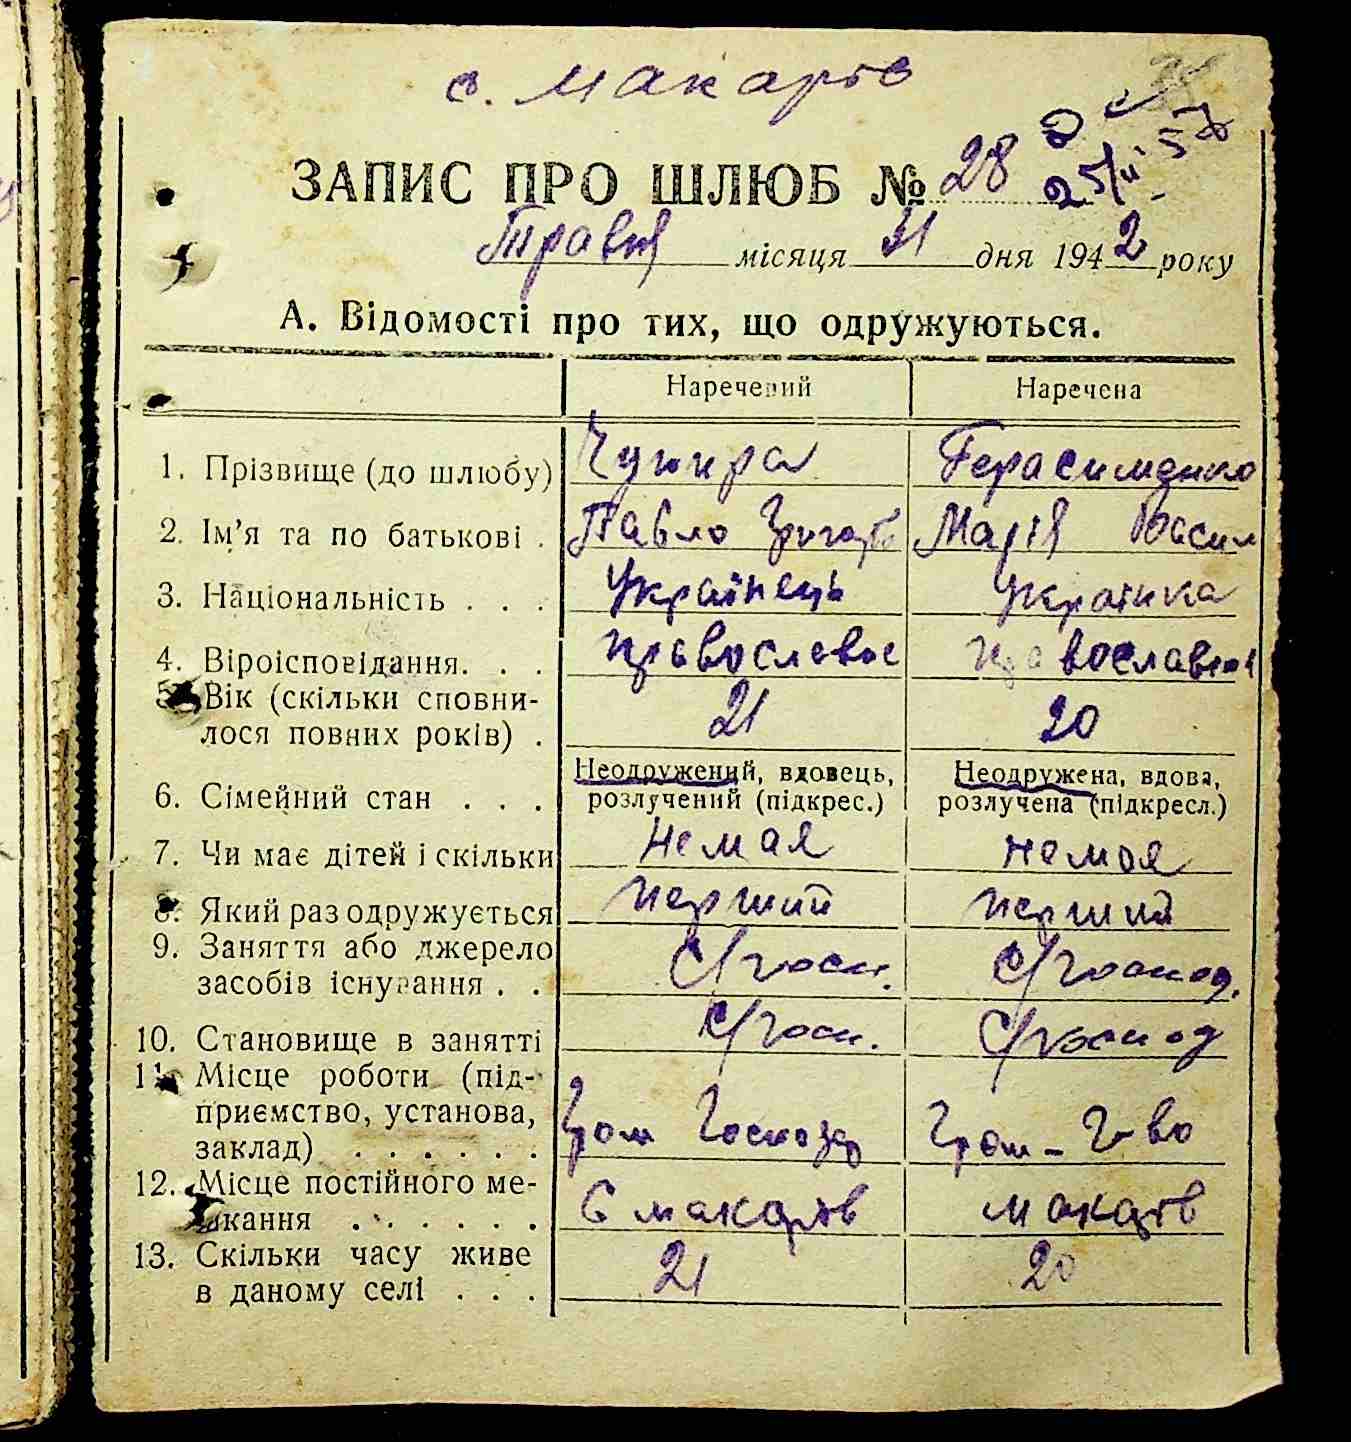 с. Макарів
ЗАПИС ПРО ШЛЮБ № 28
25/VI 57
Травня місяця 31 дня 1942 року
А. Відомості про тих, що одружуються.
Наречений Наречена
1. Прізвище (до шлюбу) Герасименко
2. Ім'я та по батькові . Павло Григор Марія Васил
3. Національність . . . Українець Українка
4. Віроісповідання. . . православне православної
5. Вік (скільки сповни-
лося повних років) . 21 20
Неодружений, вдовець, Неодружена, вдова,
6. Сімейний стан . . . розлучений (підкрес.) розлучена (підкресл.)
7. Чи має дітей і скільки немая немоя
8. Який раз одружується перший перший
9. Заняття або джерело
засобів існування . . С/госп. С/господ.
10. Становище в занятті С/госп. С/господ
11. Місце роботи (під-
приємство, установа,
заклад) . . . . . . Гром Господар Гром-Г-во
12. Місце постійного ме-
шкання . . . . . . С Макарів Макарів
13. Скільки часу живе
в даному селі . . . 21 20